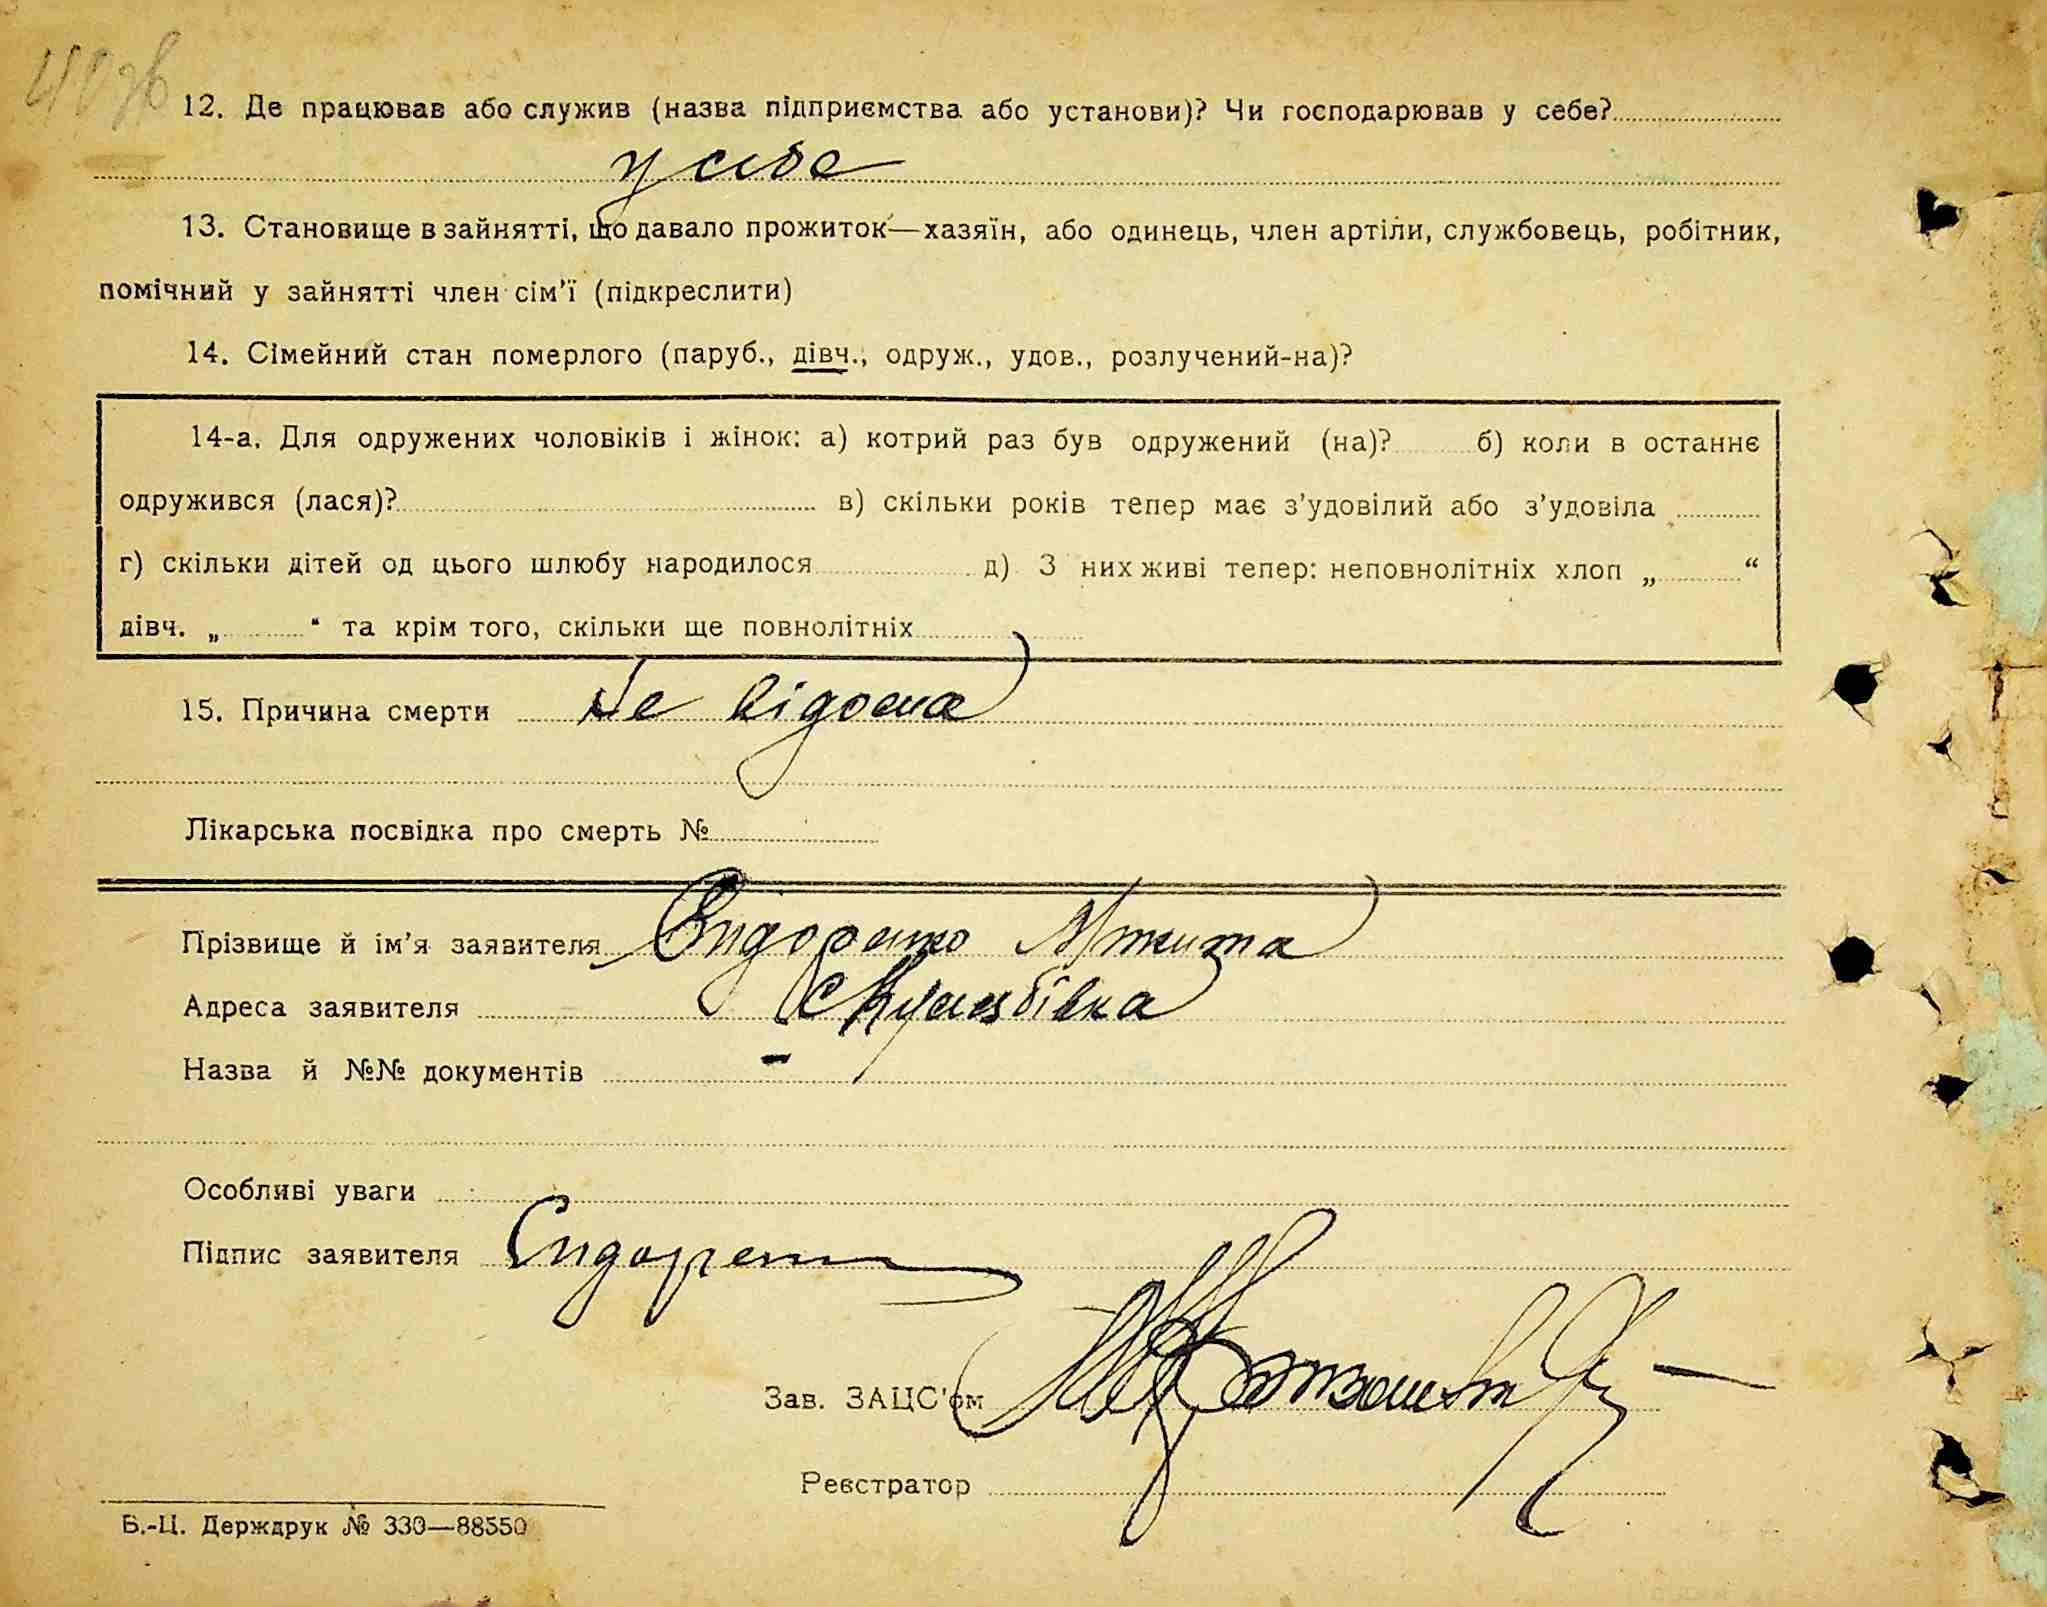 12. Де працював або служив (назва підприємства або установи)? Чи господарював у себе?
у себе
13. Становище в зайнятті, що давало прожиток—хазяїн, або одинець, член артіли, службовець, робітник,
помічний у зайнятті член сім'ї (підкреслити)
14. Сімейний стан померлого (паруб., дівч., одруж., удов., розлучений-на)?
14-а. Для одружених чоловіків і жінок: а) котрий раз був одружений (на)? б) коли в останнє
одружився (лася)? в) скільки років тепер має з'удовілий або з'удовіла
г) скільки дітей од цього шлюбу народилося д) З них живі тепер: неповнолітніх хлоп „ “
дівч. „ “ та крім того, скільки ще повнолітніх
15. Причина смерти Не відома
Лікарська посвідка про смерть №
Прізвище й ім'я заявителя Сидоренко Микита
Адреса заявителя с
Назва й №№ документів -
Особливі уваги
Підпис заявителя Сидоренко
Зав. ЗАЦС'ом
Реєстратор
Б.-Ц. Держдрук № 330—88550